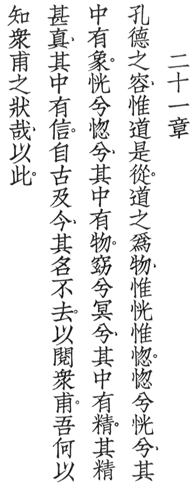 二十一章
孔德之容、惟道是從。道之爲物、惟恍惟惚。惚兮恍兮、其
中有象。恍兮惚兮、其中有物。窈兮冥兮、其中有精。其精
甚真、其中有信。自古及今、其名不去。以閱衆甫。吾何以
知衆甫之狀哉、以此。